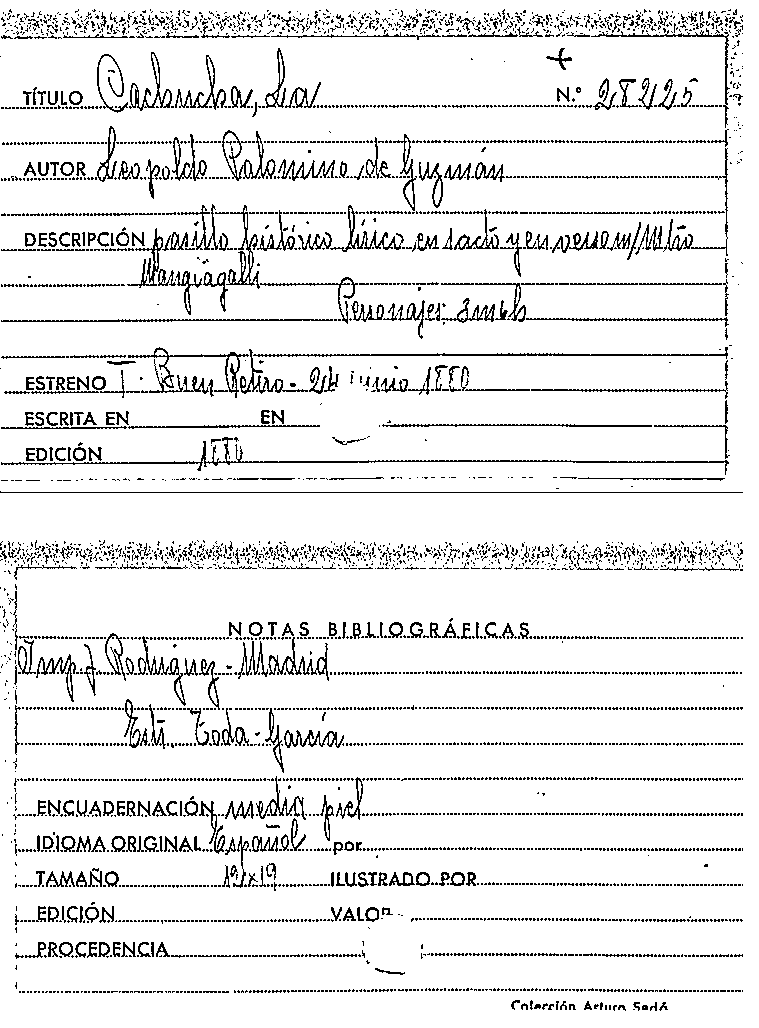 +
TÍTULO Cachucha, La N.º 28225
AUTOR Leopoldo Palomino de Guzmán
DESCRIPCIÓN pasillo histórico lírico en 1 acto y en verso m/ Mtro
Mangiagalli
Personajes: 3m 6h
ESTRENO T. Buen Retiro - 24 junio 1880
ESCRITA EN EN
EDICIÓN 1880
NOTAS BIBLIOGRÁFICAS
Imp. J. Rodríguez - Madrid
Estr. Toda - García
ENCUADERNACIÓN media piel
IDIOMA ORIGINAL Español por
TAMAÑO 12x19 ILUSTRADO POR
EDICIÓN VALOR
PROCEDENCIA
Colección Arturo Sedó